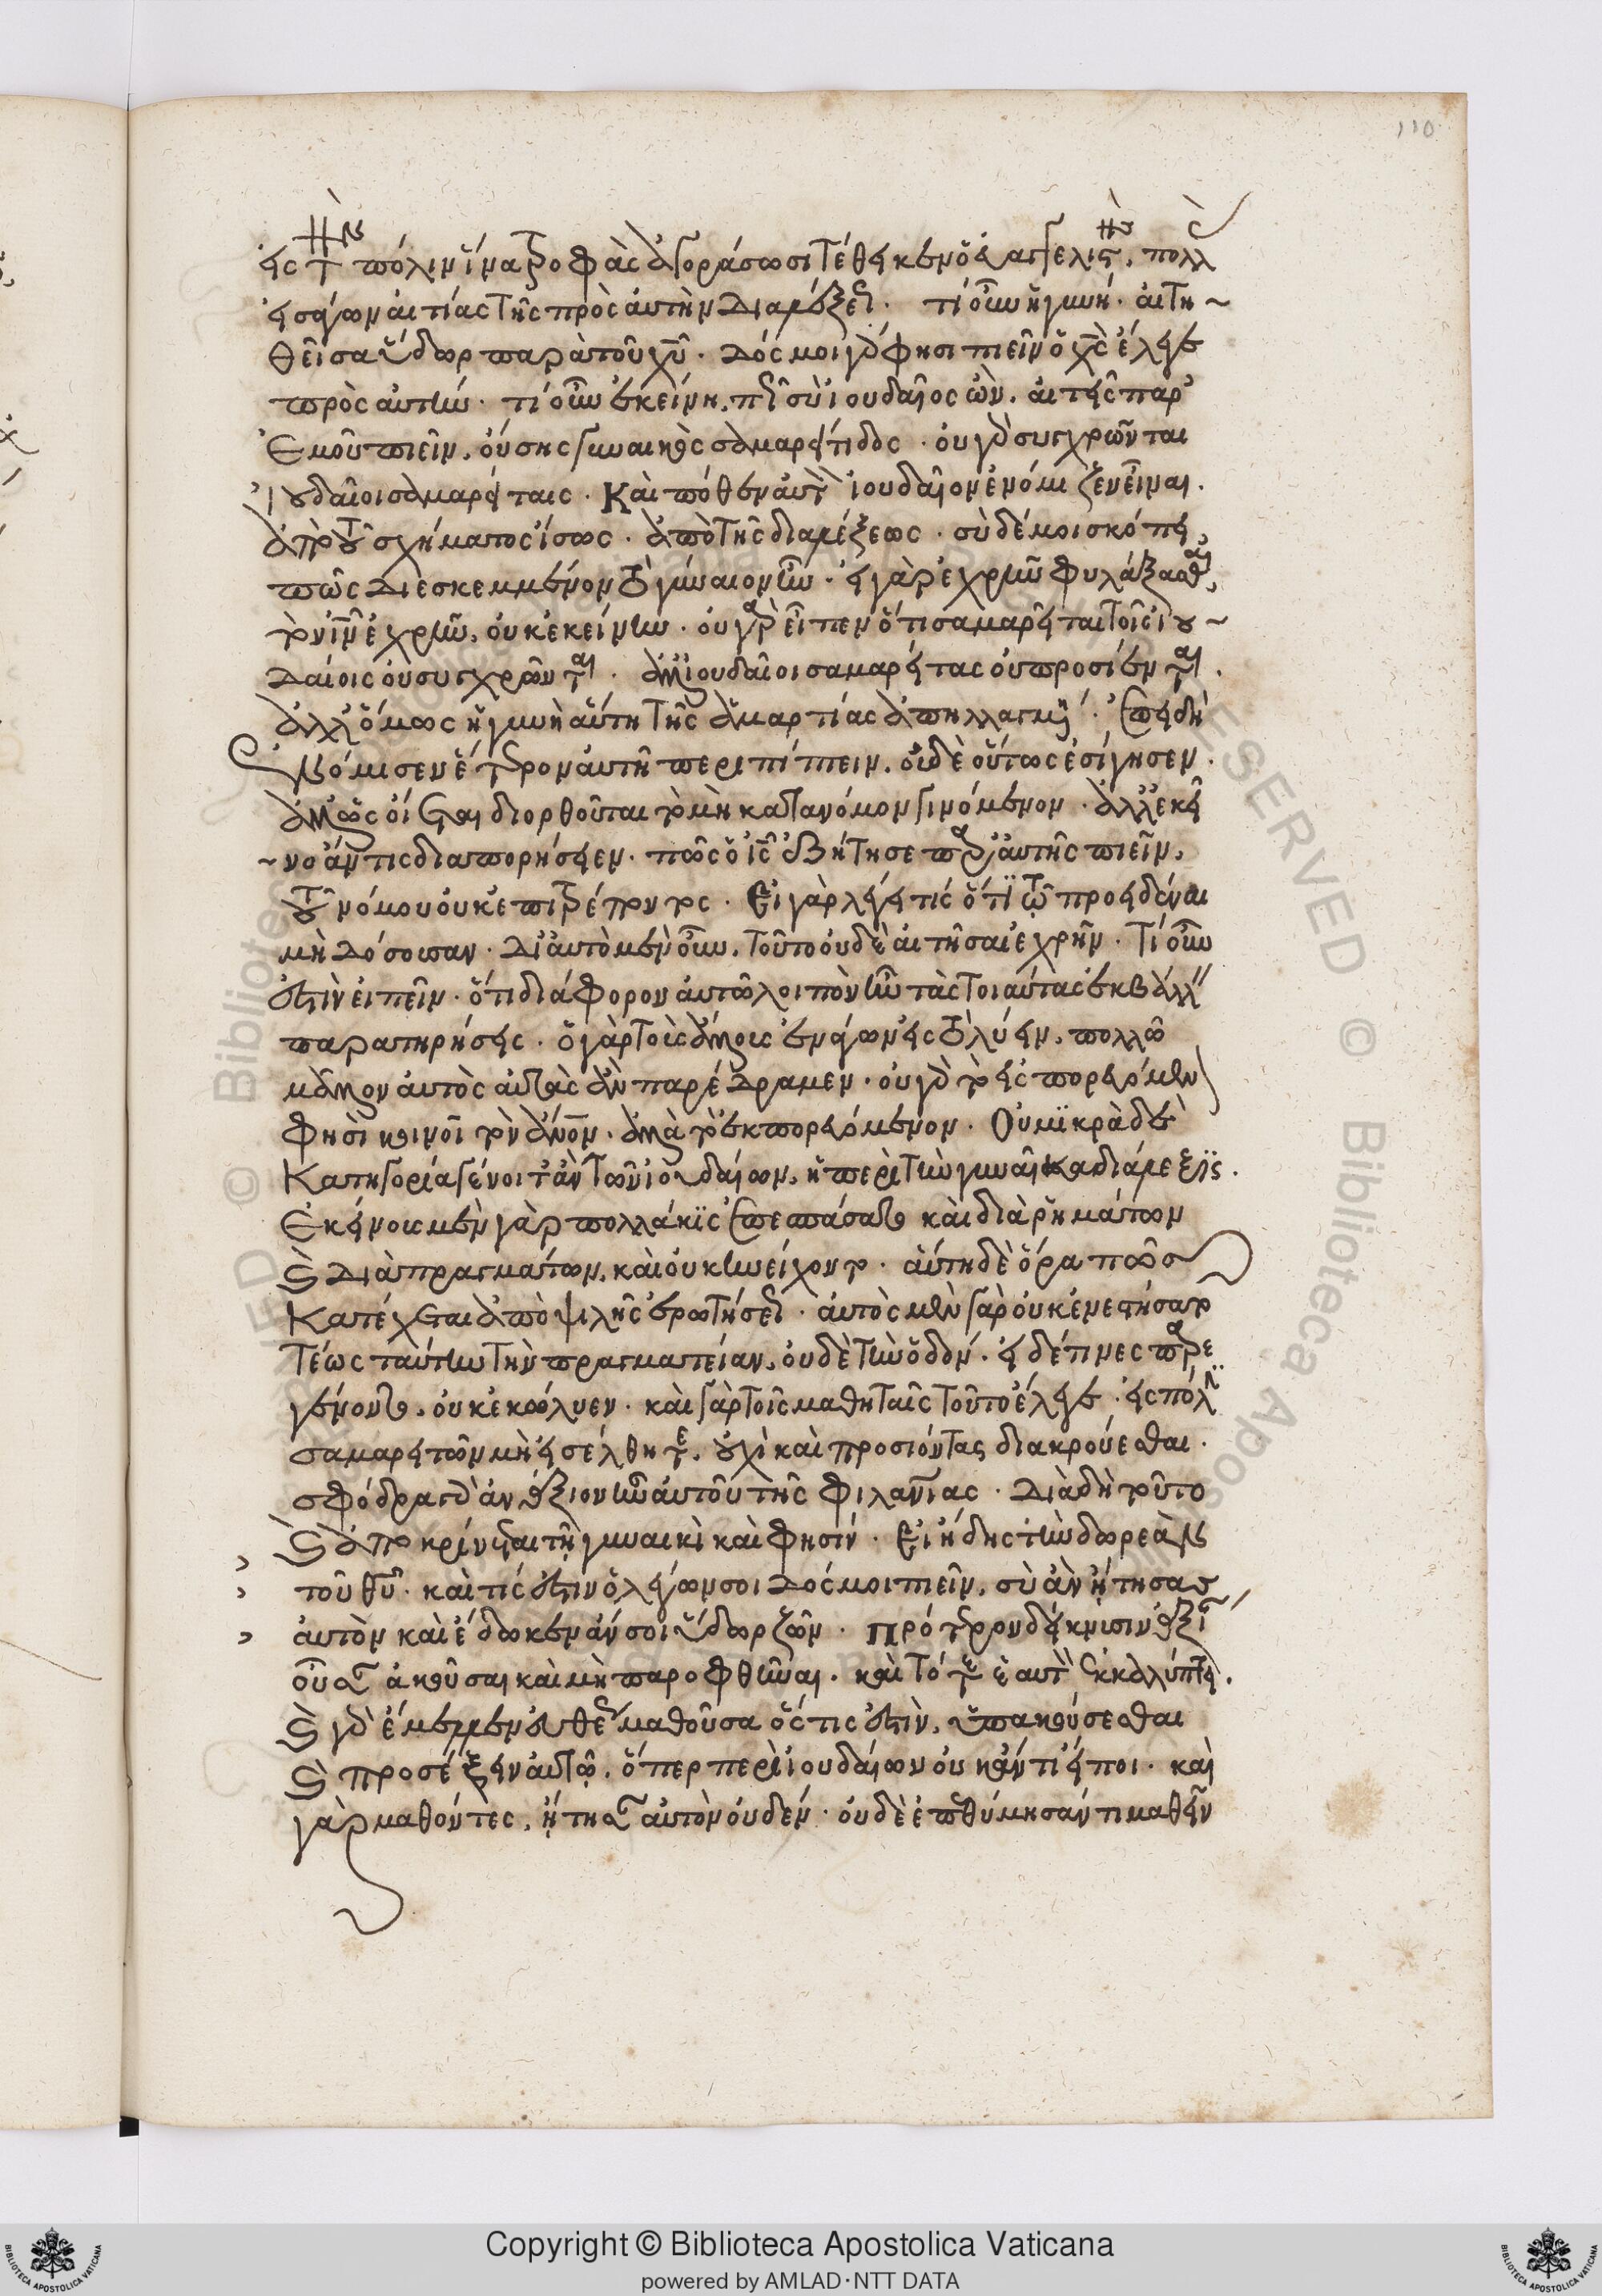 110
εἰς τὴν πόλιν ἵνα τροφὰς ἀγοράσωσι τέθεικεν ὁ εὐαγγελιστὴς, πολλὰς
εἰσάγων αἰτίας τῆς πρὸς αὐτὴν διαλέξεως. τί οὖν ἡ γυνή. αἰτη~
θεῖσα ὕδωρ παρὰ τοῦ χυ. δός μοι γὰρ φησι πιεῖν ὁ χς ἔλεγε
πρὸς αὐτήν. τί οὖν ἐκείνη, πῶς σὺ ἰουδαῖος ὢν, αἰτεῖς παρ'
ἐμοῦ πιεῖν, οὔσης γυναικὸς σαμαρείτιδος. οὐ γὰρ συγχρῶνται
ἰουδαῖοι σαμαρείταις. καὶ πόθεν αὐτὸν ἰουδαῖον ἐνόμιζεν εἶναι.
ἀπὸ τοῦ σχήματος ἴσως. ἀπὸ τῆς διαλέξεως. σὺ δέ μοι σκόπει,
πῶς διεσκεμμένον τὸ γύναιον ἦν. εἰ γὰρ ἐχρῆν φυλάξασθαι,
τὸν ιν ἐχρῆν, οὐκ ἐκείνην. οὐ γὰρ εἶπεν ὅτι σαμαρεῖται τοῖς ἰου~
δαίοις οὐ συγχρῶνται. ἀλλ' ἰουδαῖοι σαμαρείτας οὐ προσίενται.
ἀλλ' ὅμως ἡ γυνὴ αὕτη τῆς ἁμαρτίας ἀπηλλαγμένη. ἐπειδὴ
νόμισεν ἕτερον αὐτῆ περιπίπτειν, οὐδὲ οὕτως ἐσίγησεν.
ἀλλ' ὡς οἴεται διορθοῦται τὸ μὴ κατὰ νόμον γινόμενον. ἀλλ' ἐκεῖ
~νο ἄν τις διαπορήσειεν. πῶς ὁ ις ἐζήτησε παρ' αὐτῆς πιεῖν,
τοῦ νόμου οὐκ ἐπιτρέποντος. Εἰ γὰρ λέγει τίς ὅτι τῷ προειδέναι
μὴ δόσουσαν. δι' αὐτὸ μὲν οὖν, τοῦτο οὐδὲ αἰτῆσαι ἐχρῆν. Τί οὖν
ἐστὶν εἰπεῖν. ὅτι διάφορον αὐτῶ λοιπὸν ἦν τὰς τοιαύτας ἐκβάλλειν
παρατηρήσεις. ὁ γὰρ τοὺς ἄλλους ἐνάγων εἰς τὸ λύειν, πολλῶ
μᾶλλον αὐτὸς αὐτὰς ἂν παρέδραμεν. οὐ γὰρ τὸ εἰσπορευόμενον
φησὶ κοινοῖ τὸν ἄνον, ἀλλὰ τὸ ἐκπορευόμενον. Οὐ μϊκρὰ δὲ
κατηγορία γένοιτ' ἂν τῶν ἰουδαίων, ἡ περὶ τὴν γυναῖκα διάλεξϊς.
Ἐκείνους μὲν γὰρ πολλάκϊς ἐπεσπάσατο καὶ διὰ ῥημάτων
καὶ διὰ πραγμάτων, καὶ οὐκ ἠνείχοντο. αὕτη δὲ ὅρα πῶς
κατέχεται ἀπὸ ψιλῆς ἐρωτήσεως. αὐτὸς μὲν γὰρ οὐκ ἐνεστήσατο
τέως ταύτην τὴν πραγματείαν, οὐδὲ τὴν ὁδόν. εἰ δέ τινες παρε
γένοντο, οὐκ ἐκώλυεν. καὶ γὰρ τοῖς μαθηταῖς τοῦτο ἔλεγε. εἰς πόλιν
σαμαρειτῶν μὴ εἰσέλθητε, οὐχὶ καὶ προσιόντας διακρούεσθαι.
σφόδρα γὰρ ἀνάξιον ἦν αὐτοῦ τῆς φιλανίας. διὰ δὴ τοῦτο
καὶ ἀποκρίνεται τῇ γυναικὶ καὶ φησίν. Εἰ ᾔδης τὴν δωρεὰν
τοῦ θυ. καὶ τίς ἐστιν ὁ λέγων σοι δός μοι πιεῖν, σὺ ἂν ᾔτησας
αὐτὸν καὶ ἔδωκεν ἄν σοι ὕδωρ ζῶν. πρότερον δείκνυσιν ἀξίαν
οὖσαν ἀκοῦσαι καὶ μὴ παροφθῆναι. καὶ τότε ἑαυτὸν ἐκκαλύπτει.
καὶ γὰρ ἔμελλεν εὐθέως μαθοῦσα ὅστις ἐστὶν, ὑπακούσεσθαι
καὶ προσέξειν αὐτῷ. ὅπερ περὶ ἰουδαίων οὐκ ἄν τι εἴποι. καὶ
γὰρ μαθόντες, ᾔτησαν αὐτὸν οὐδέν. οὐδὲ ἐπεθύμησάν τι μαθεῖν
Copyright © Biblioteca Apostolica Vaticana
powered by AMLAD·NTT DATA